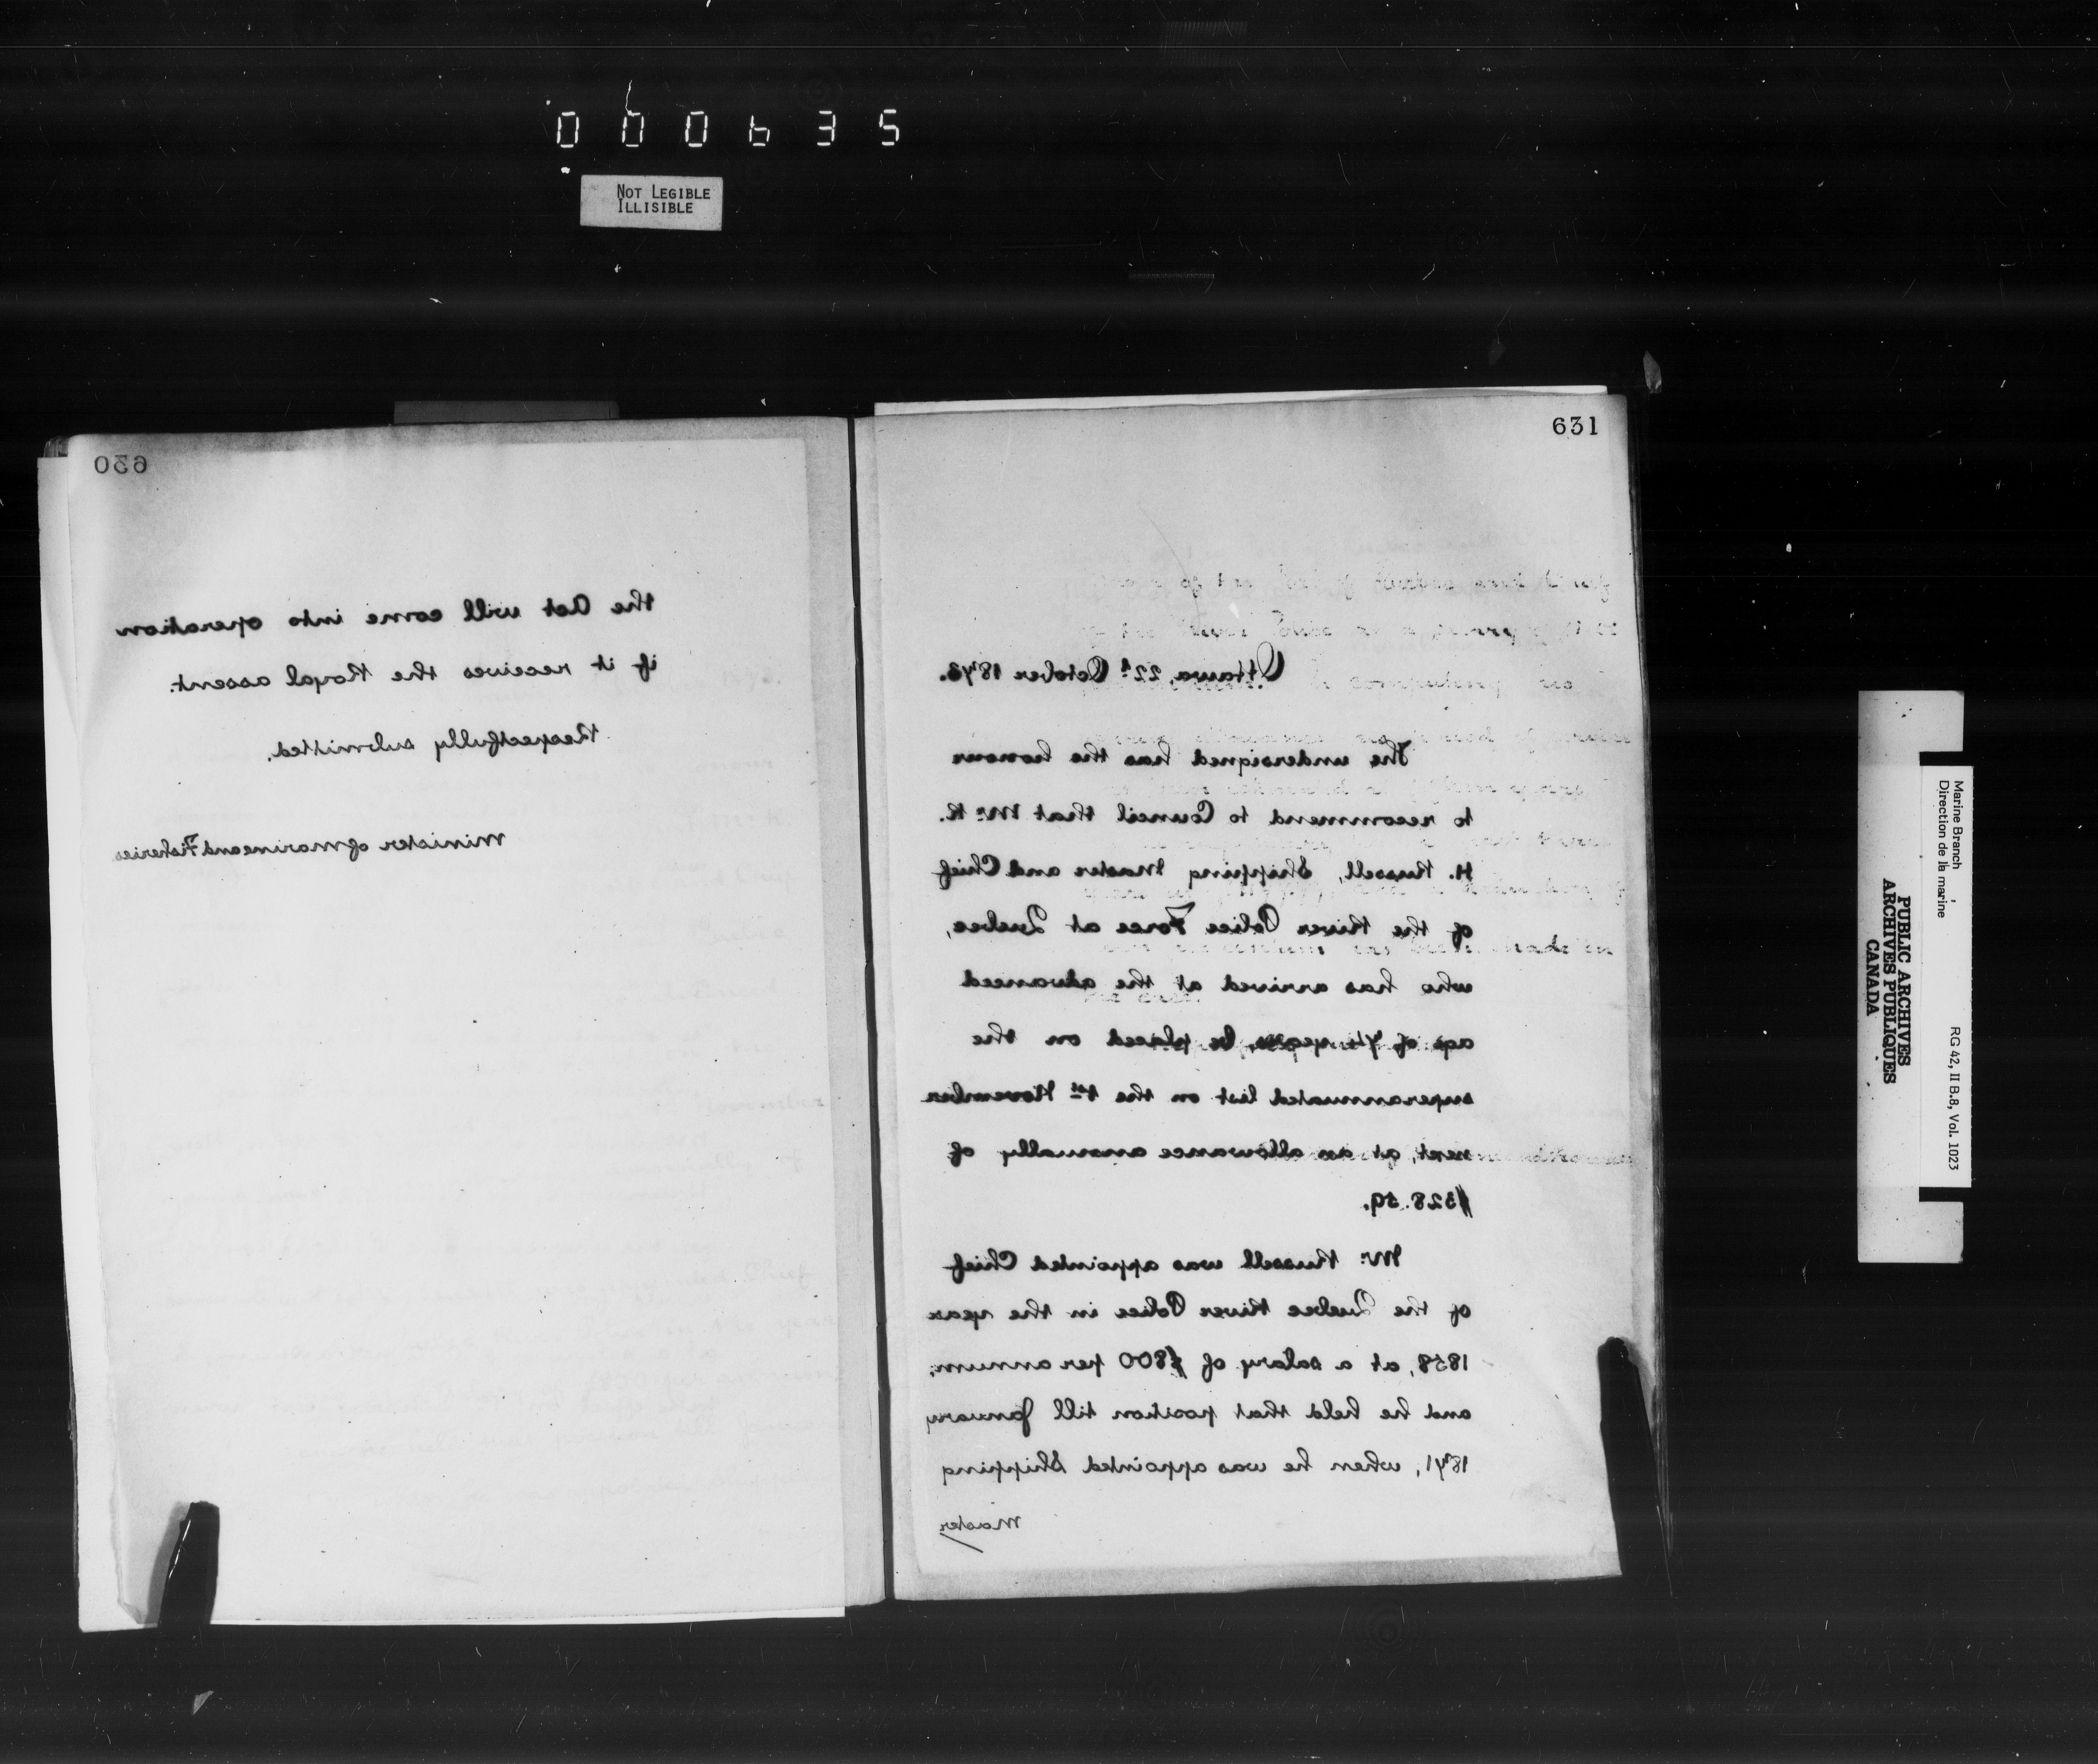 000635
NOT LEGIBLE
ILLISIBLE
630
the Act will come into operation
if it receives the Royal assent.
Respectfully submitted.
Minister of Marine and Fisheries
631
Ottawa, 22d October 1873.
The undersigned has the honour
to recommend to Council that Mr. R.
H. Russell, Shipping Master and Chief
of the River Police Force at Quebec,
who has arrived at the advanced
age of 74 years, be placed on the
superannuated list on the 1st November
next, at an allowance annually of
$328.59.
Mr. Russell was appointed Chief
of the Quebec River Police in the year
1858, at a salary of $800 per annum,
and he held that position till January
1871, when he was appointed Shipping
Master
Marine Branch
Direction de la marine
RG 42, II B.8, Vol. 1023
PUBLIC ARCHIVES
ARCHIVES PUBLIQUES
CANADA